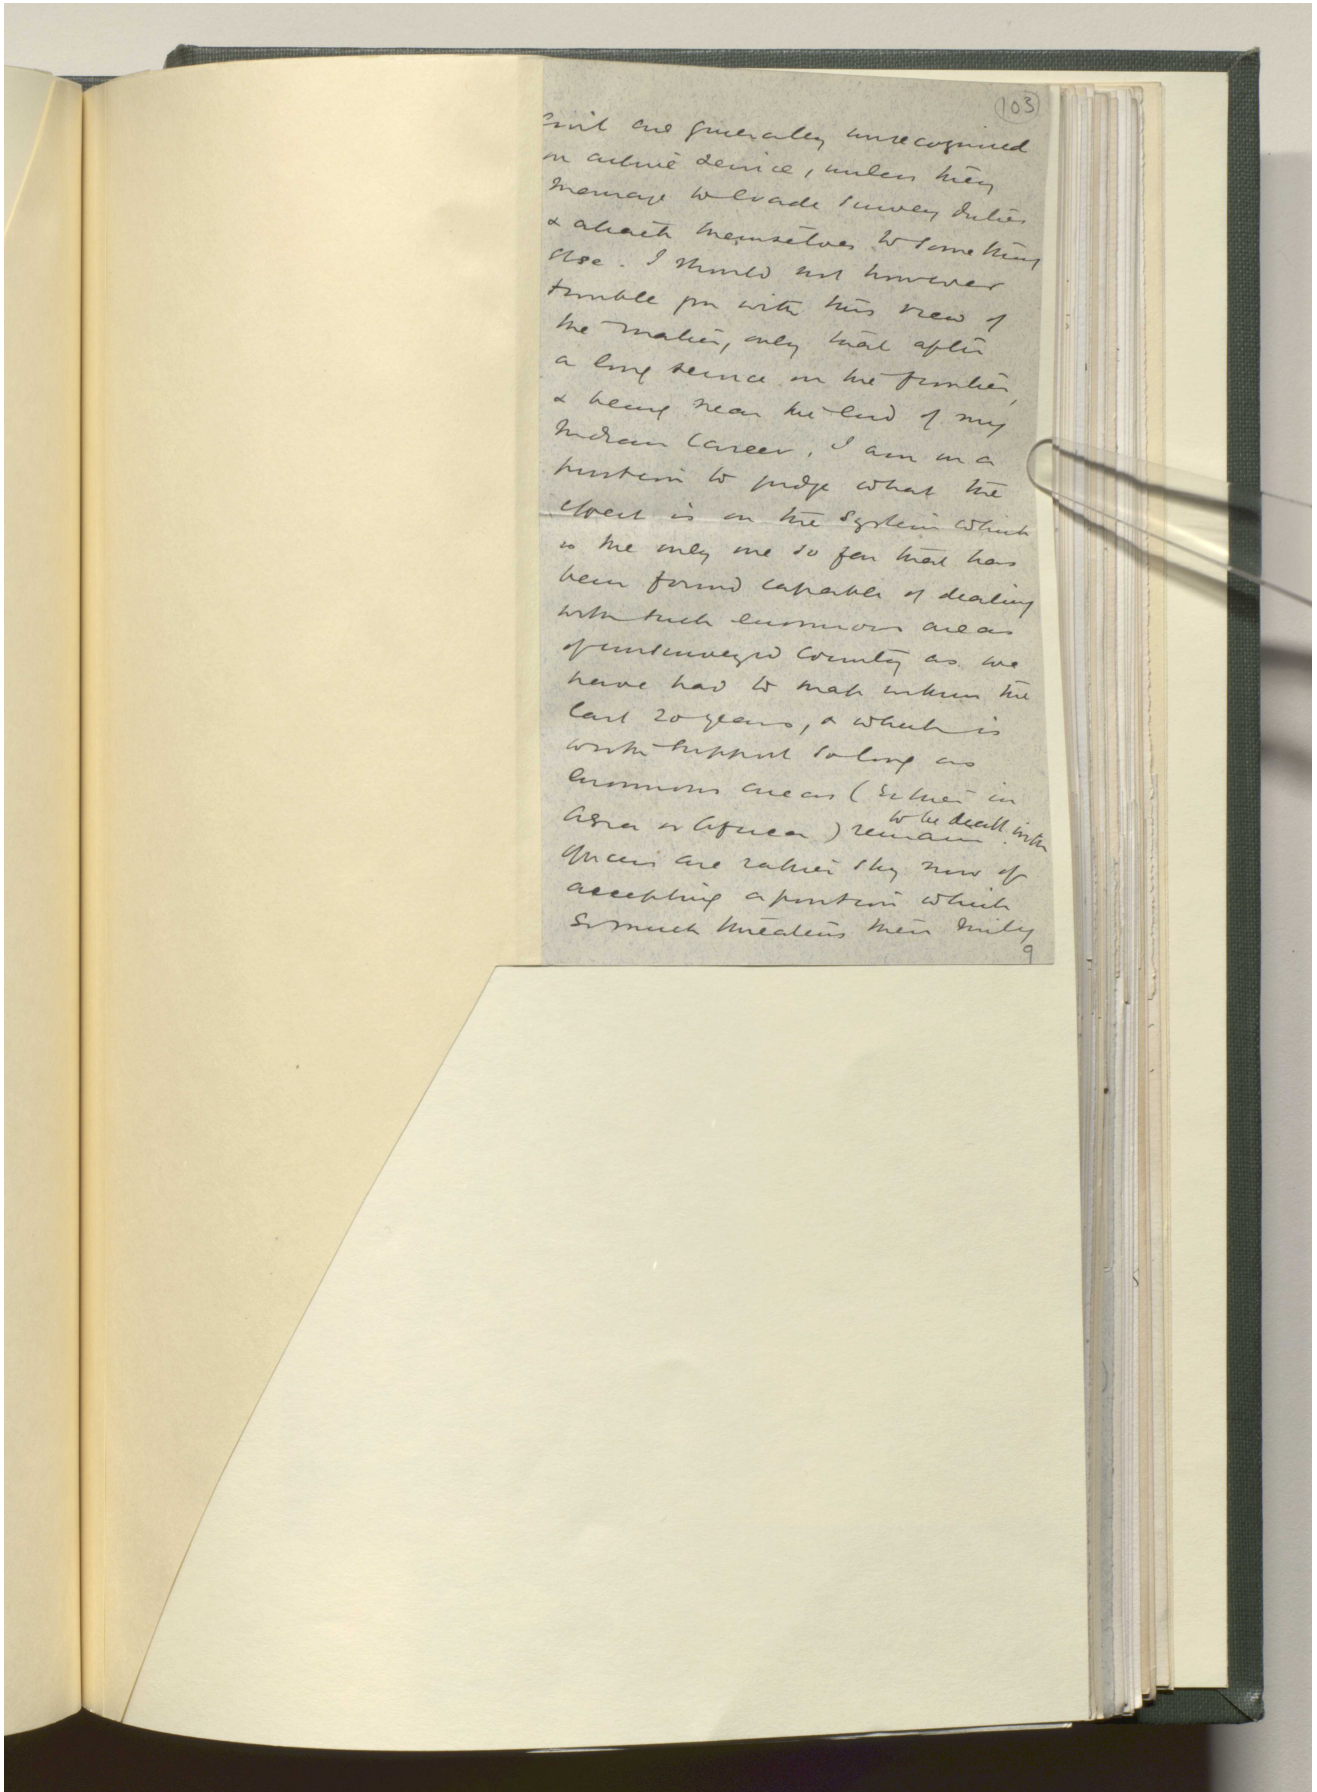 103
Civil are generally unrecognised
on active service, unless they
manage to evade survey duties
& attach themselves to something
else. I should not however
trouble you with this view of
the matter, only that after
a long service on the frontier,
& being near the end of my
Indian career, I am in a
position to judge what the
effect is on the system which
is the only one so far that has
been found capable of dealing
with such enormous areas
of unsurveyed country as we
have had to map within the
last 20 years, & which is
worth support so long as
enormous areas (either in
Asia or Africa) remain to be dealt with.
Officers are rather shy now of
accepting a position which
so much threatens their mily
9